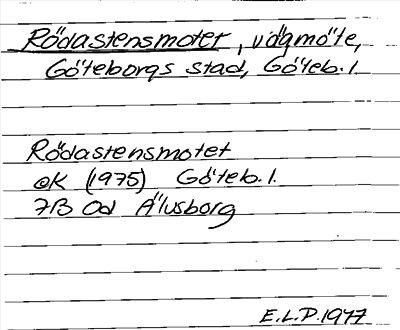 Rödastensmotet, vägmöte,
Göteborgs stad, Göteb. l.
Rödastensmotet
ek (1975) Göteb. l.
7B Od Älvsborg
E.L.P. 1977